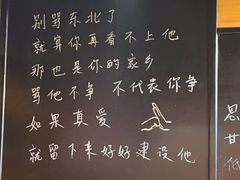 别骂东北了
就算你再看不上他
那也是你的家乡
骂他不争 不代表你争
如果真爱
就留下来好好建设他
思
甘
低